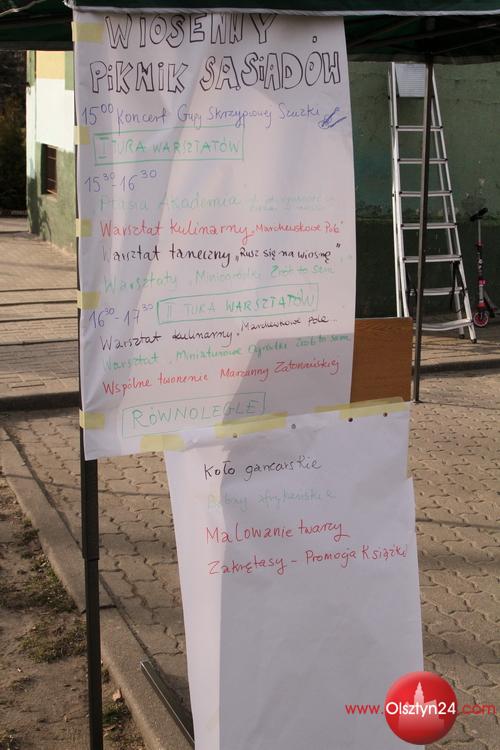 WIOSENNY
PIKNIK SĄSIADÓW
15 00 Koncert Grupy Skrzypcowej Szustki
I TURA WARSZTATÓW
15 30 - 16 30
Ptasia Akademia
Warsztat kulinarny „Marchewkowe Pole"
Warsztat taneczny „Rusz się na wiosnę"
Warsztaty „Miniogródki Zrób to sam
16 30 - 17 30 II TURA WARSZTATÓW
Warsztat kulinarny „Marchewkowe Pole
Warsztat „Miniaturowe Ogródki Zrób to sam
Wspólne tworzenie Marzanny Zatorzańskiej
RÓWNOLEGLE
Koło garncarskie
Bębny afrykańskie
Malowanie twarzy
Zakrętasy - Promocja Książki
www.Olsztyn24.com